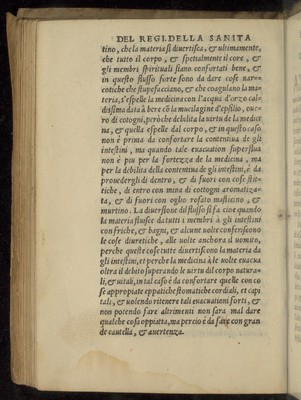 DEL REGI. DELLA SANITA
tino, che la materia si diuertisca, & ultimamente,
che tutto il corpo, & spettalmente il core, &
gli membri spirituali siano confortati bene, &
in questo flusso forte sono da dare cose nar=
cotiche che stupefacciano, & che coagulano la ma=
teria, s'espelle la medicina con l'acqua d'orzo cal=
dissima data à bere cō la mucilagine d'epsilio, oue=
ro di cotogni, pero che debilita la uirtu de la medici
na, & quella espelle dal corpo, & in questo caso
non è prima da confortare la contentiua de gli
intestini, ma quando tale euacuation superflua
non è piu per la fortezza de la medicina, ma
per la debilita della contentiua de gli intestini, è da
prouedergli di dentro, & di fuori con cose stit=
tiche, di entro con mina di cottogni aromatiza=
ta, & di fuori con oglio rosato masticino, &
murtino. La diuersione dil flusso si fa cioe quando
la materia flusce da tutti i membri à gli intestini
con friche, & bagni, & alcune uolte conferiscono
le cose diuretiche, alle uolte anchora il uomito,
perche queste cose tutte diuertiscono la materia da
gli intestini, et perche la medicina à le uolte euacua
oltra il debito superando le uirtu dil corpo natura=
li, & uitali, in tal caso è da confortare quelle con co
se appropiate eppatiche stomatiche cordiali, et capi
tali, & uolendo ritenere tali euacuationi forti, &
non potendo fare altrimenti non sara mal dare
qualche cosa oppiatta, ma percio è da fare con gran
de cautella, & auertenza.